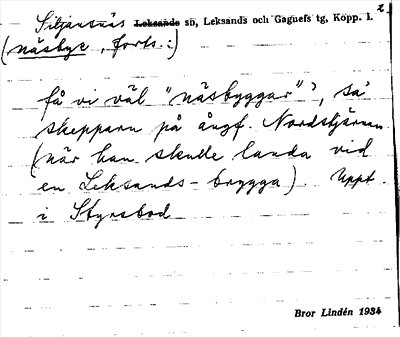 Siljansnäs Leksands sn, Leksands och Gagnefs tg, Kopp. l. 2
(näsbye, forts.:)
få vi väl "näsbyggar"?, sa
skepparn på ångf. Nordstjärnan
(när han skulle landa vid
en Leksands-brygga) Uppt.
i Styrsbod
Bror Lindén 1934